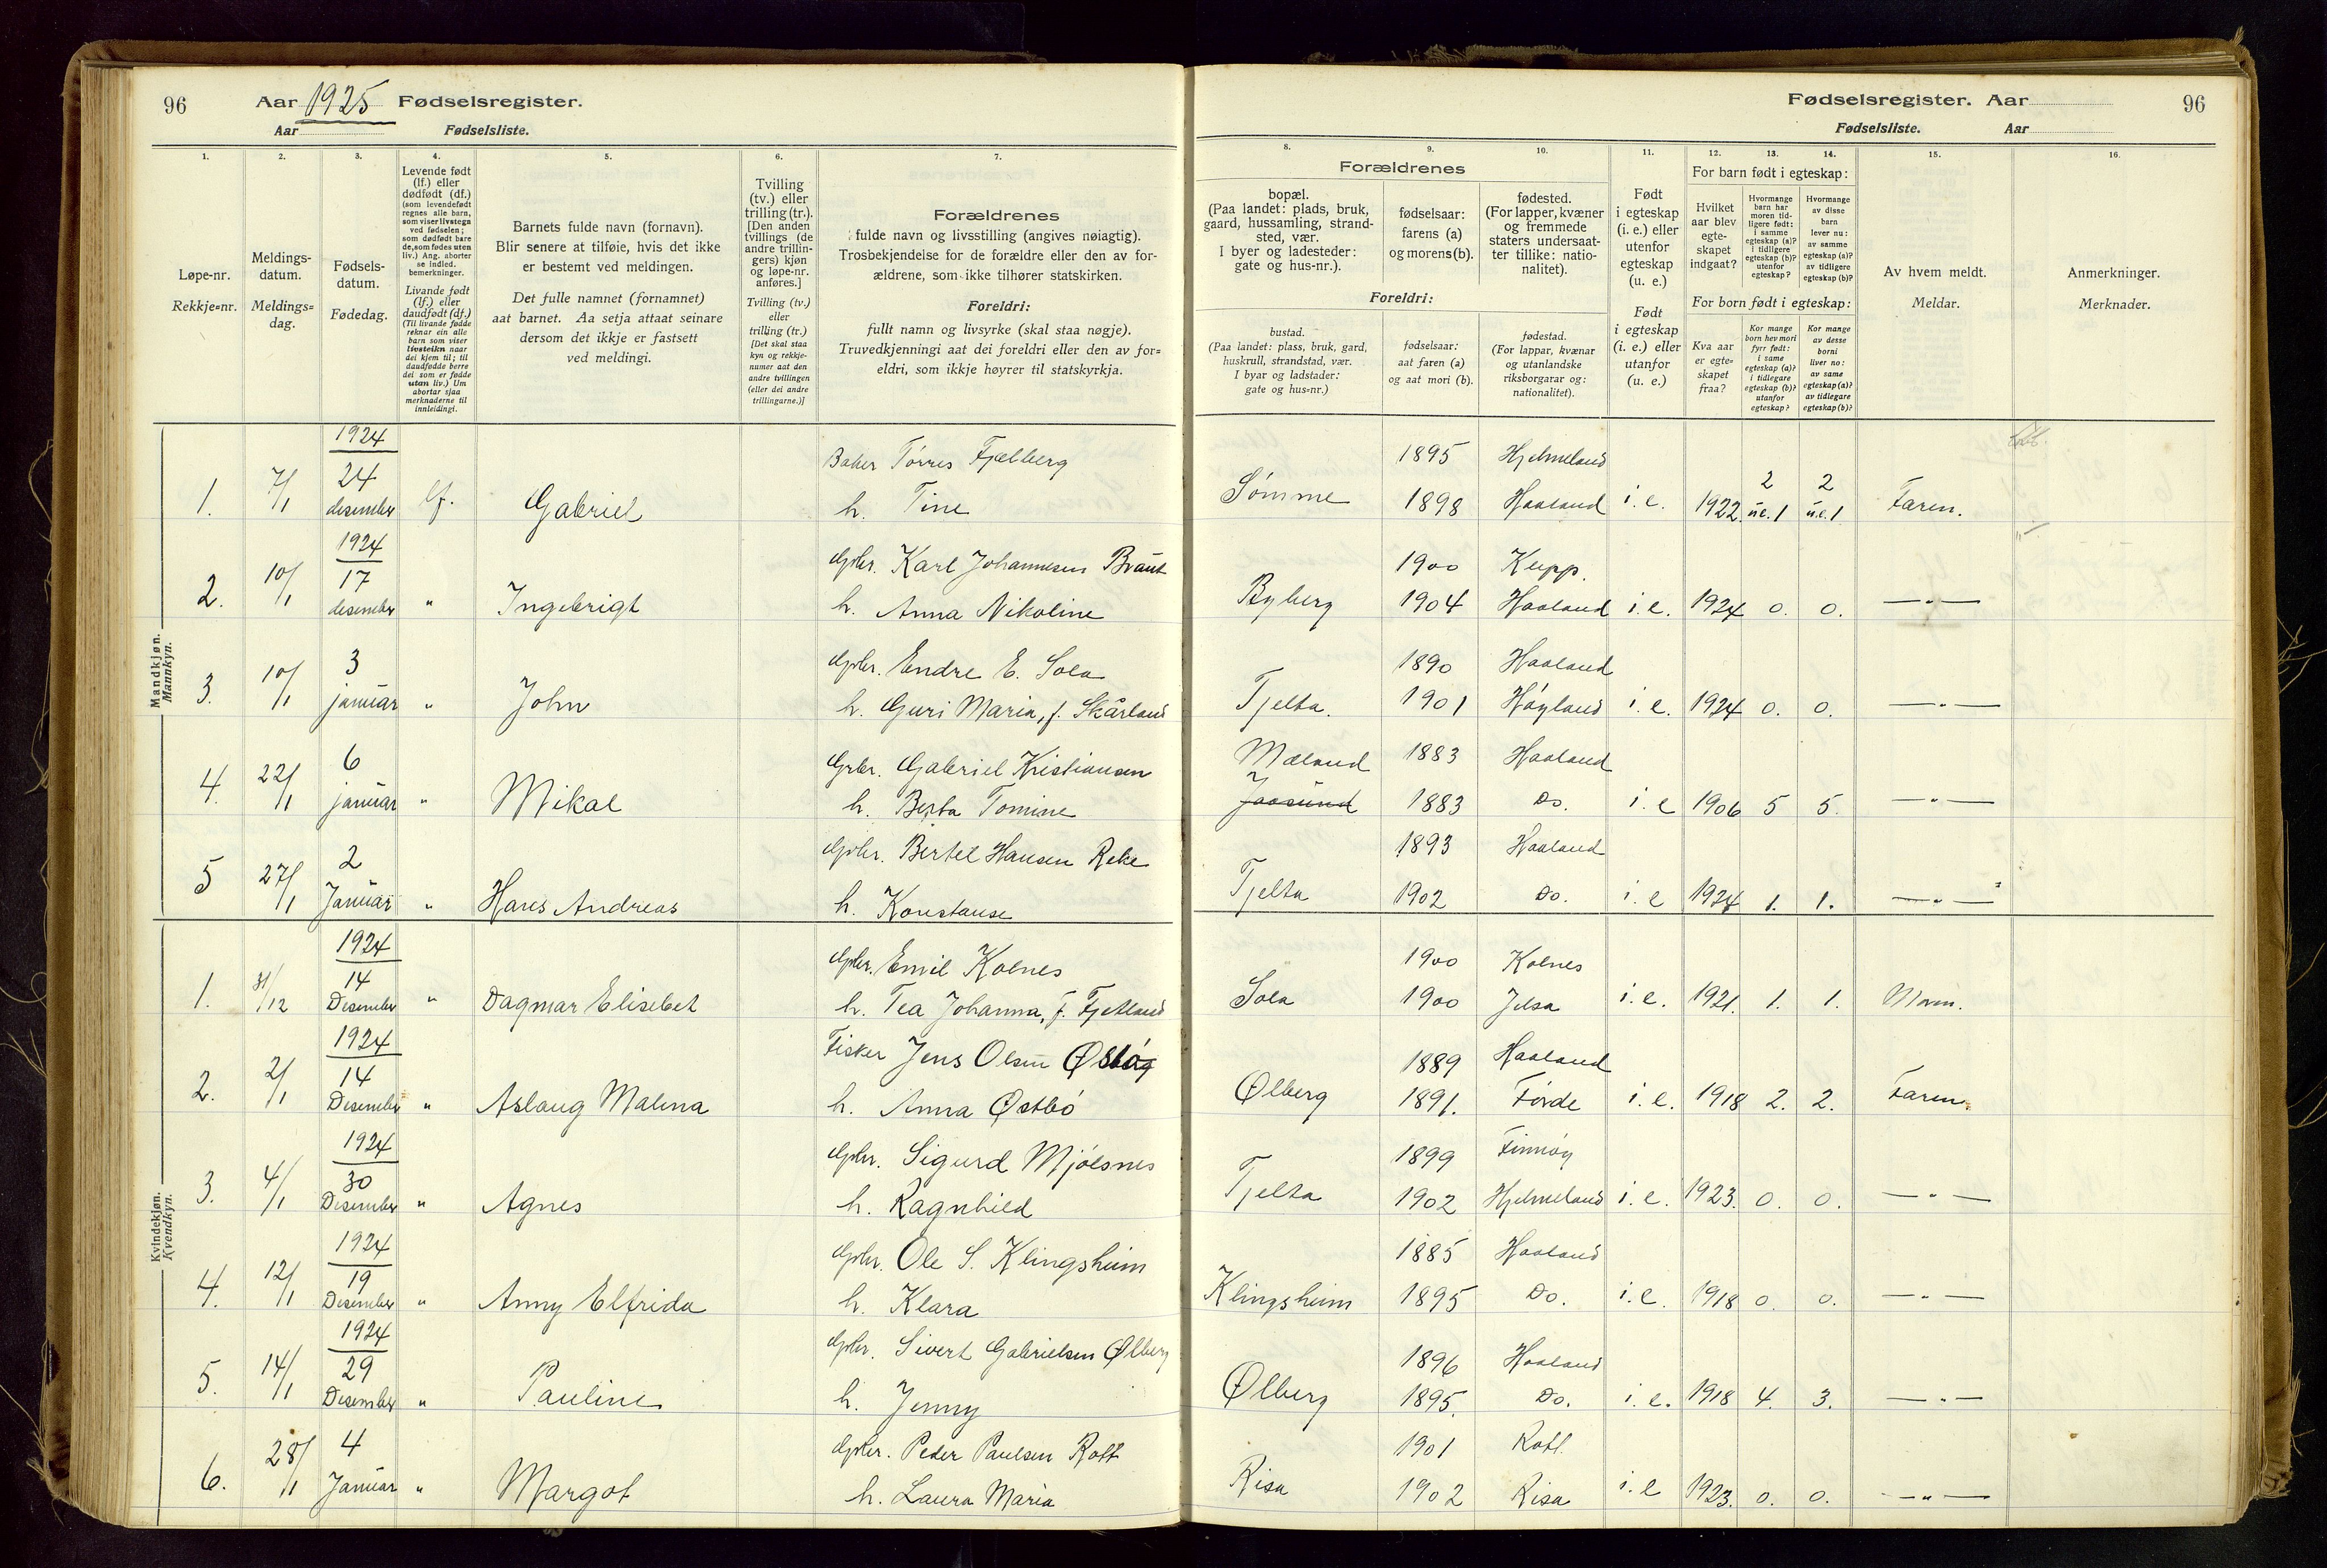 96 Aar 1925 Fødselsregister.
Aar Fødselsliste.
Fødselsregister. Aar 96
Fødselsliste. Aar
1. 2. 3. 4. 5. 6. 7.
8. 9. 10. 11. 12. 13. 14. 15. 16.
Løpe-nr.
Rekkje=nr.
Meldings-
datum.
Meldings=
dag.
Fødsels-
datum.
Fødedag.
Levende født
(lf.) eller
dødfødt (df.)
(som levendefødt
regnes alle barn,
som viser livstegn
ved fødselen;
som dødfødt bare
de, som fødes uten
liv.) Ang. aborter
se indled.
bemerkninger.
Livande født
(lf.) eller
daudfødt (df.)
(Til livande fødde
reknar ein alle
barn som viser
livsteikn naar
dei kjem til; til
daudfødde berre
dei som er fødde
utan liv.) Um
abortar sjaa
merknaderne til
innleidingi.
Barnets fulde navn (fornavn).
Blir senere at tilføie, hvis det ikke
er bestemt ved meldingen.
Det fulle namnet (fornamnet)
aat barnet. Aa setja attaat seinare
dersom det ikkje er fastsett
ved meldingi.
Tvilling
(tv.) eller
trilling (tr.).
[Den anden
tvillings (de
andre trillin-
gers) kjøn
og løpe-nr.
anføres.]
Tvilling (tv.)
eller
trilling (tr.)
[Det skal staa
kyn og rekkje-
numer aat den
andre tvillingen
(eller dei andre
trillingarne.)]
Forældrenes
fulde navn og livsstilling (angives nøiagtig).
Trosbekjendelse for de forældre eller den av for-
ældrene, som ikke tilhører statskirken.
Foreldri:
fullt namn og livsyrke (skal staa nøgje).
Truvedkjenningi aat dei foreldri eller den av for=
eldri, som ikkje høyrer til statskyrkja.
Forældrenes
bopæl.
(Paa landet: plads, bruk,
gaard, hussamling, strand-
sted, vær.
I byer og ladesteder:
gate og hus-nr.).
fødselsaar:
farens (a)
og morens (b).
fødested.
(For lapper, kvæner
og fremmede
staters undersaat-
ter tillike: natio-
nalitet).
Foreldri:
bustad.
(Paa landet: plass, bruk, gard,
huskrull, strandstad, vær.
I byar og ladstader:
gate og hus-nr.)
fødselsaar:
aat faren (a)
og aat mori (b).
fødestad.
(For lappar, kvænar
og utanlandske
riksborgarar og:
nationalitet).
Født
i egteskap
(i. e.) eller
utenfor
egteskap
(u. e.)
Født
i egteskap
(i. e.) eller
utanfor
(u. e.)
For barn født i egteskap:
Hvilket
aar blev
egte-
skapet
indgaat?
Hvormange
barn har
moren tid-
ligere født:
i samme
egteskap (a)?
i tidligere
egteskap (b)?
utenfor
egteskap?
Hvormange
av disse
barn
lever nu:
av samme
egteskap (a)?
av tidligere
egteskap (b)?
For born født i egteskap:
Kva aar
er egte-
skapet
fraa?
Kor mange
born hev mori
fyrr født:
i same
egteskap (a)?
i tidlegare
egteskap (b)?
utanfor
egteskap?
Kor mange
av desse
borni
liver no:
av same
egteskap (a)?
av tidlegare
egteskap (b)?
Av hvem meldt.
Meldar.
Anmerkninger.
Merknader.
Mandkjøn.
Mannkyn.
1924
Baker Tørres Fjelberg 1895 Hjelmeland
1. 7/1 24 desember lf. Gabriel h. Tine Sømme 1898 Haaland i. e. 1922. 2 u.e. 1 2 u.e. 1 Faren.
1924
Gbr. Karl Johannesen Braut 1900 Klepp.
2. 10/1 17 desember " Ingebrigt h. Anna Nikoline Byberg 1904 Haaland i. e. 1924 0. 0. — " —
Gbr. Endre E. Sola 1890 Haaland
3. 10/1 3 januar " John h. Guri Maria, f. Skårland Tjelta. 1901 Høyland i. e. 1924 0. 0. — " —
Gbr. Gabriel Kristiansen Mæland 1883 Haaland
4. 22/1 6 januar " Mikal h. Berta Tomine Jaasund 1883 Do. i. e 1906 5 5. — " —
Gbr. Bertel Hansen Reke 1893 Haaland
5 27/1 2 Januar " Hans Andreas h. Konstanse Tjelta 1902 Do. i. e 1924 1. 1. — " —
Kvindekjøn.
Kvendkyn.
1924
Gbr. Emil Kolnes 1900 Kolnes
1. 31/12 14 Desember " Dagmar Elisebet h. Tea Johanna, f. Fjetland Sola 1900 Jelsa i. e. 1921. 1. 1. Moren.
1924
Fisker Jens Olsen Østbø 1889 Haaland
2. 2/1 14 Desember " Aslaug Malena h. Anna Østbø Ølberg 1891. Førde i. e. 1918 2. 2. Faren.
1924
Gbr. Sigurd Mjølsnes 1899 Finnøy
3. 4/1 30 Desember " Agnes h. Ragnhild Tjelta 1902 Hjelmeland i. e. 1923. 0. 0. — " —
1924
Gbr. Ole S. Klingsheim 1885 Haaland
4. 12/1 19 Desember " Anny Elfrida h. Klara Klingsheim 1895 Do. i. e. 1918 0. 0. — " —
1924
Gbr. Sivert Gabrielsen Ølberg 1896 Haaland
5. 14/1 29 Desember " Pauline h. Jenny Ølberg 1895. Do. i. e. 1918 4. 3. — " —
Gbr. Peder Paulsen Rott 1901 Rott.
6. 28/1 4 Januar " Margot h. Laura Maria Risa 1902 Risa i. e 1923. 0. 0. — " —